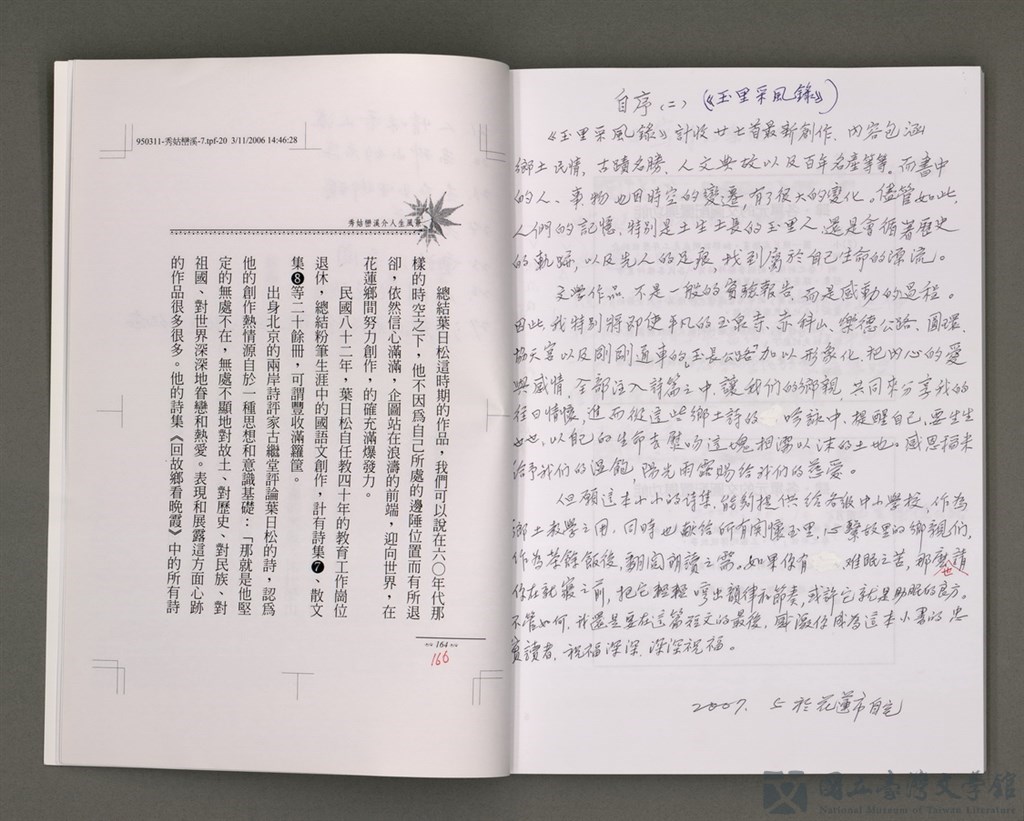 950311-秀姑巒溪-7.tpf-20 3/11/2006 14:46:28
秀姑巒溪介人生風華
總結葉日松這時期的作品，我們可以說在六〇年代那
樣的時空之下，他不因為自己所處的邊陲位置而有所退
卻，依然信心滿滿，企圖站在浪濤的前端，迎向世界，在
花蓮鄉間努力創作，的確充滿爆發力。
民國八十二年，葉日松自任教四十年的教育工作崗位
退休，總結粉筆生涯中的國語文創作，計有詩集❼、散文
集❽等二十餘冊，可謂豐收滿籮筐。
出身北京的兩岸詩評家古繼堂評論葉日松的詩，認為
他的創作熱情源自於一種思想和意識基礎：「那就是他堅
定的無處不在，無處不顯地對故土、對歷史、對民族、對
祖國、對世界深深地眷戀和熱愛。表現和展露這方面心跡
的作品很多很多。他的詩集《回故鄉看晚霞》中的所有詩
164
166
自序(二)（《玉里采風錄》）
《玉里采風錄》計收廿七首最新創作，內容包涵
鄉土民情，古蹟名勝，人文典故以及百年名產等等。而書中
的人、事、物也因時空的變遷，有了很大的變化。儘管如此，
人們的記憶，特別是土生土長的玉里人，還是會循著歷史
的軌跡，以及先人的足痕，找到屬於自己生命的源流。
文學作品，不是一般的實驗報告，而是感動的過程。
因此，我特別將即使平凡的玉泉寺、赤科山、樂德公路、圓環、
協天宮以及剛剛通車的玉長公路加以形象化，把內心的愛
與感情，全部注入詩篇之中，讓我們的鄉親，共同來分享我的
往日情懷，進而從這些鄉土詩的吟詠中，提醒自己，要生生
世世，以自己的生命去慰吻這塊相濡以沫的土地。感恩稻米
給予我們的溫飽，陽光雨露賜給我們的慈愛。
但願這本小小的詩集，能夠提供給各級中小學校，作為
鄉土教學之用，同時也獻給所有關懷玉里，心繫故里的鄉親們，
作為茶餘飯後，翻閱朗讀之需。如果你有難眠之苦，那麼也請
你在就寢之前，把它輕輕哼出韻律和節奏，或許它就是助眠的良方。
不管如何，我還是要在這篇短文的最後，感激你成為這本小書的忠
實讀者，祝福深深，深深祝福。
2007. 5 於花蓮市自宅
國立臺灣文學館
National Museum of Taiwan Literature